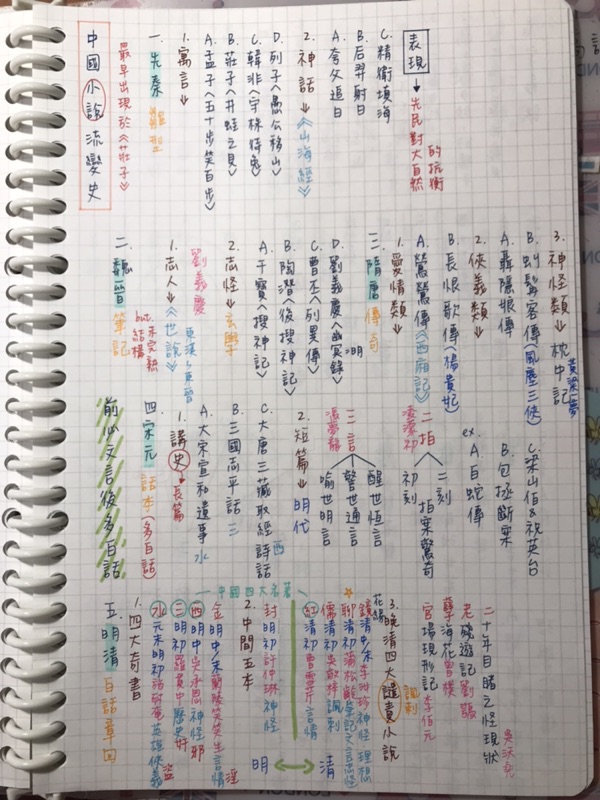 中國小說流變史
最早出現於《莊子》
一.先秦 雛型
1.寓言↓
A.孟子《五十步笑百步》
B.莊子《井蛙之見》
C.韓非《守株待兔》
D.列子《愚公移山》
2.神話《山海經》
A.夸父追日
B.后羿射日
C.精衛填海
表現→先民對大自然的抗衡
二.魏晉 筆記
but未完熟結構
1.志人↓《世說》東漢~東晉
劉義慶
2.志怪↓玄學
A.干寶《搜神記》
B.陶潛《後搜神記》
C.曹丕《列異傳》
D.劉義慶《幽冥錄》
明
三.隋唐 傳奇
1.愛情類↓
A.鶯鶯傳《西廂記》
B.長恨歌傳《楊貴妃》
2.俠義類↓
A.聶隱娘傳
B.虬髯客傳《風塵三俠》
3.神怪類↓枕中記
黃粱一夢
前必文言後多白話
四.宋元 話本(多白話)
1.講史→長篇
A.大宋宣和遺事 水
B.三國志平話 三
C.大唐三藏取經詩話 西
2.短篇↓明代
三言
馮夢龍
喻世明言
警世通言
醒世恆言
二拍
凌濛初
初刻
二刻
拍案驚奇
ex.
A.白蛇傳
B.包拯斷案
C.梁山伯&祝英台
五.明清 白話章回
1.四大奇書
中國四大名著
水 元末明初施耐庵英雄俠義 盜
三 明初羅貫中歷史 奸
西 明中吳承恩神怪 邪
金 明中末蘭陵笑笑生言情 淫
2.中間五本
封 明初許仲琳神怪
明↔清
紅 清初曹雪芹言情
儒 清初吳敬梓諷刺
聊 清初蒲松齡筆記文言志怪
鏡花緣 清中末李汝珍神怪 理想
3.晚清四大譴責小說
諷刺
官場現形記 李伯元
孽海花 曾樸
老殘遊記 劉鶚
二十年目睹之怪現狀
吳沃堯